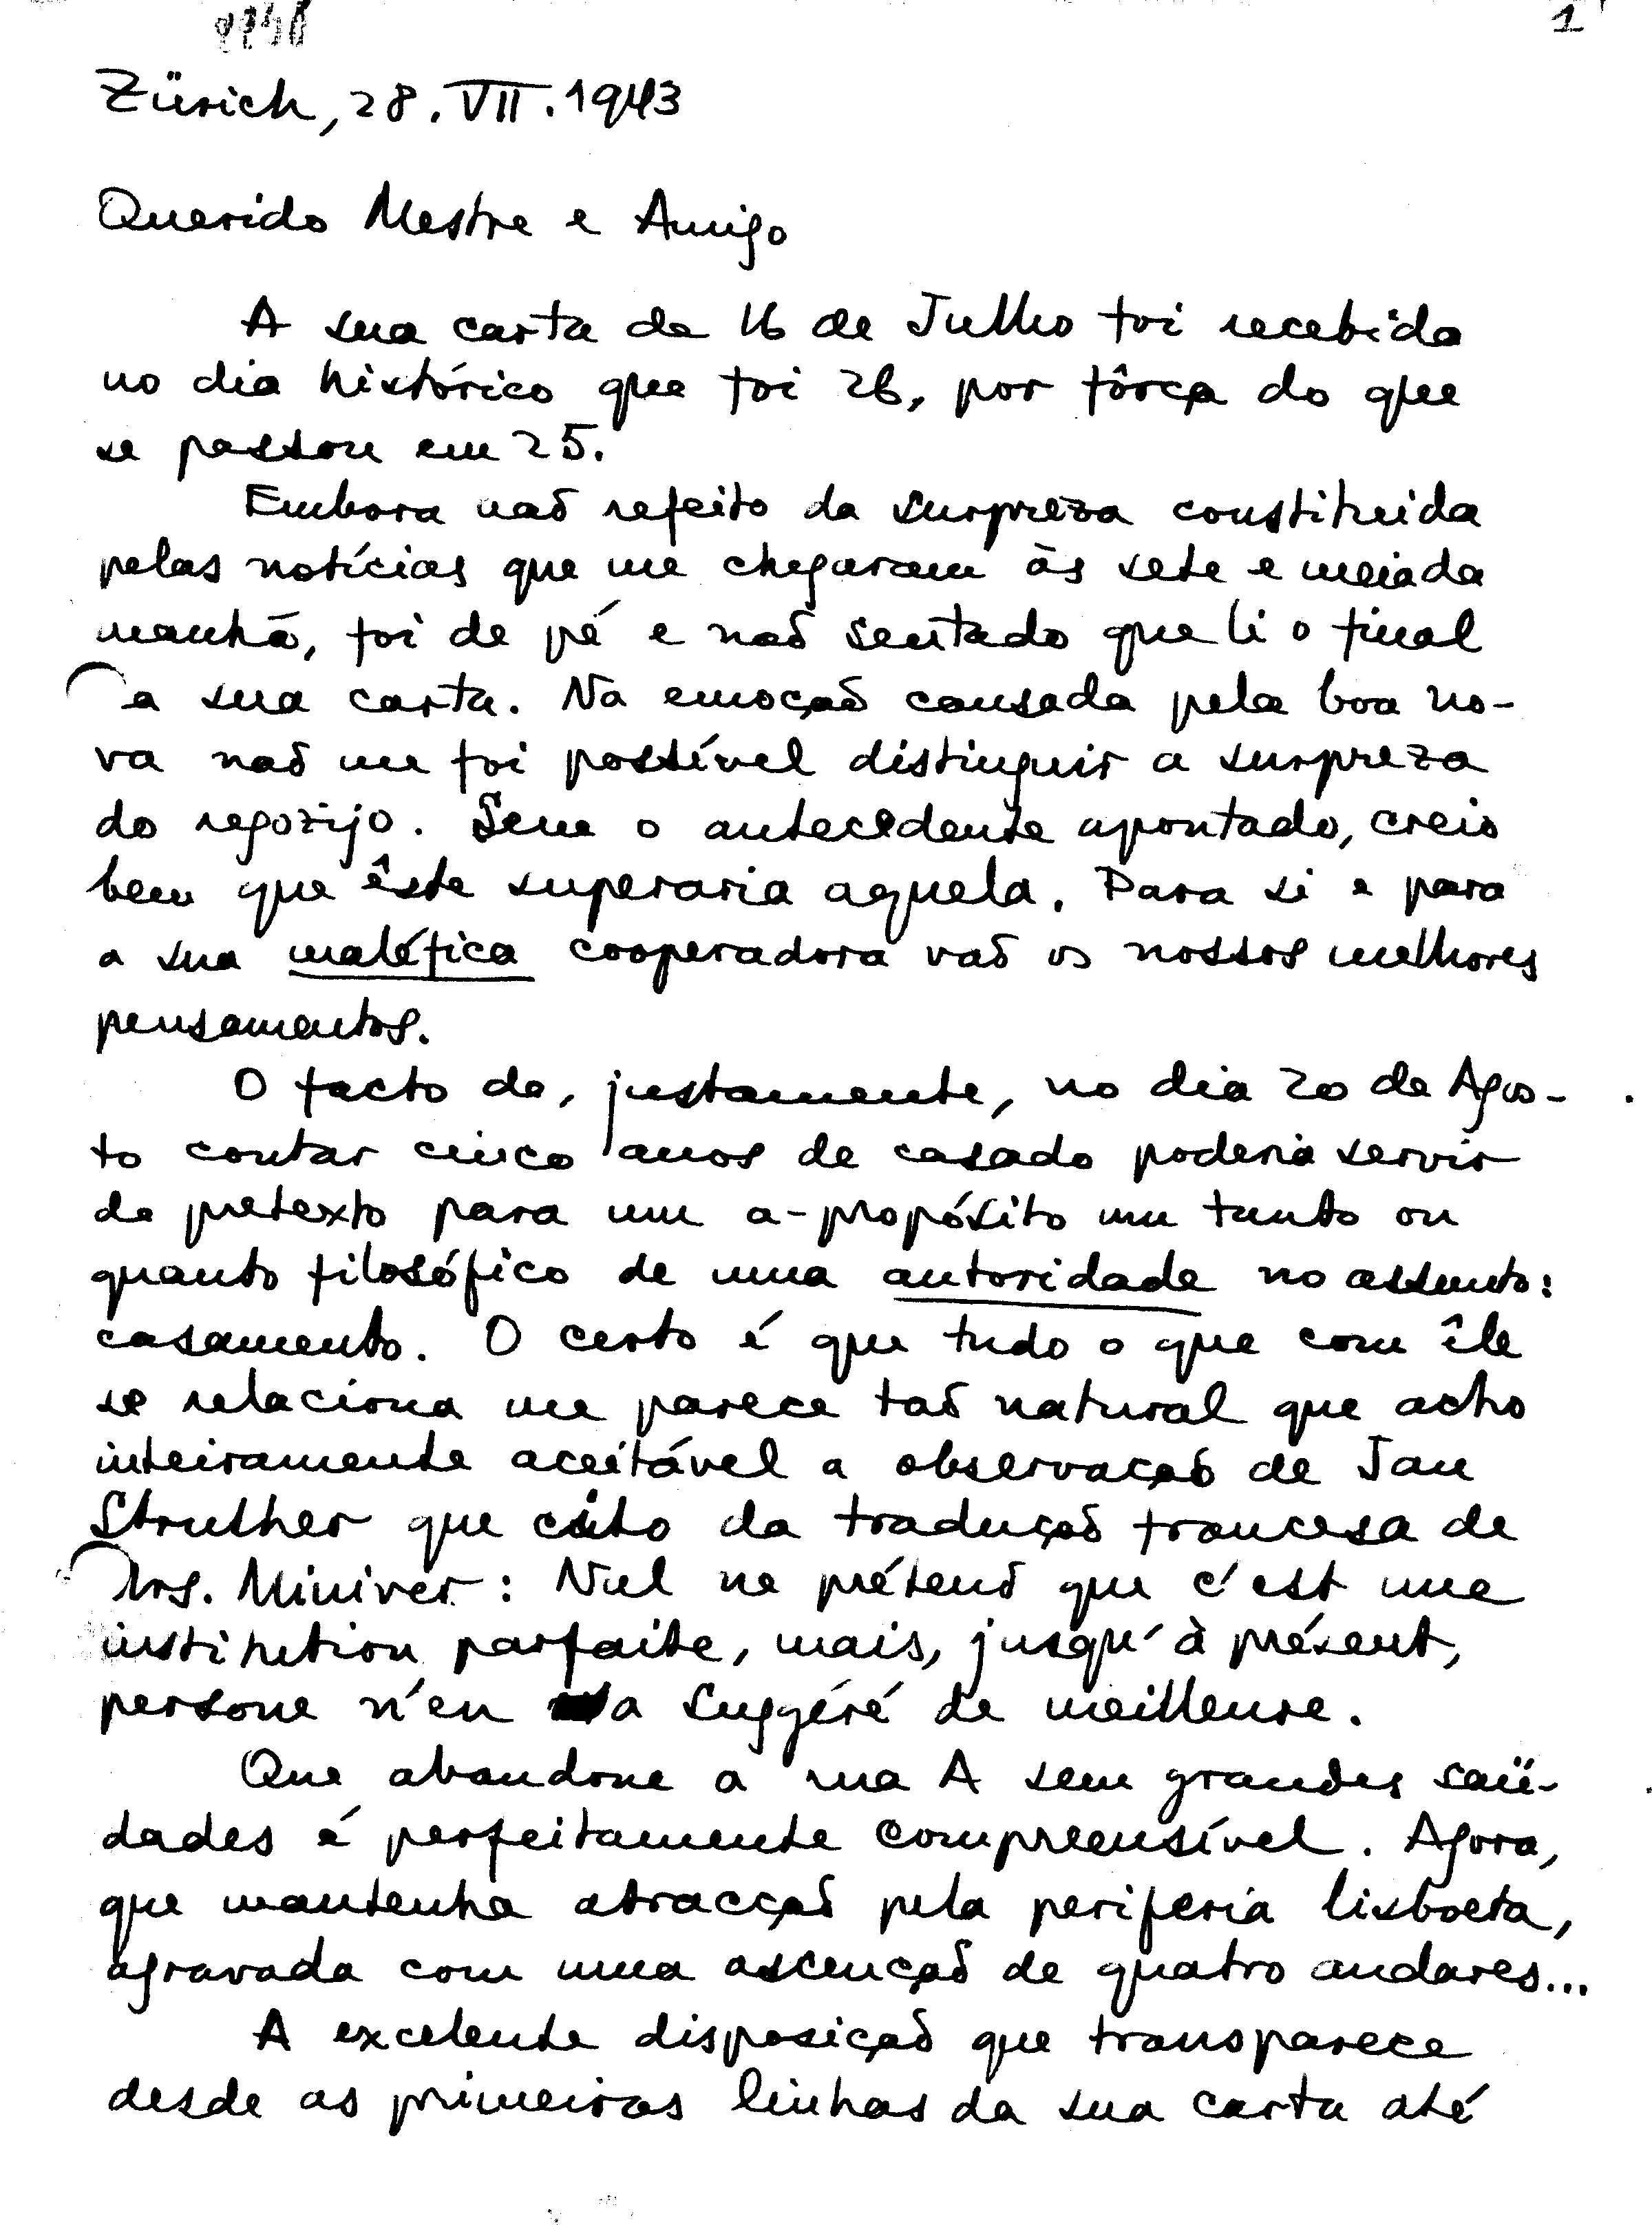 1
Zürich, 28.VII.1943
Querido Mestre e Amigo
A sua carta de 16 de Julho foi recebida
no dia histórico que foi 26, por fôrça do que
se passou em 25.
Embora naõ refeito da surpreza constituida
pelas notícias que me chegaram às sete e meia da
manhã, foi de pé e naõ sentado que li o final
a sua carta. Na emoçaõ causada pela boa no-
va naõ me foi possível distinguir a surpreza
do regozijo. Sem o antecedente apontado, creio
bem que êste superaria aquela. Para si e para
a sua maléfica cooperadora vaõ os nossos melhores
pensamentos.
O facto de, justamente, no dia 20 de Agos-
to contar cinco anos de casado poderia servir
de pretexto para um a-propósito um tanto ou
quanto filosófico de uma autoridade no assunto:
casamento. O certo é que tudo o que com êle
se relaciona me parece taõ natural que acho
inteiramente aceitável a observaçaõ de Jan
Struther que cito da traduçaõ francesa de
Mrs. Miniver: Nul ne prétend que c'est une
institution parfaite, mais, jusqu'à présent,
persone n'en a suggéré de meilleure.
Que abandone a rua A sem grandes saü-
dades é perfeitamente compreensível. Agora,
que mantenha atracçaõ pela periferia lisboeta,
agravada com uma ascençaõ de quatro andares...
A excelente disposiçaõ que transparece
desde as primeiras linhas da sua carta até